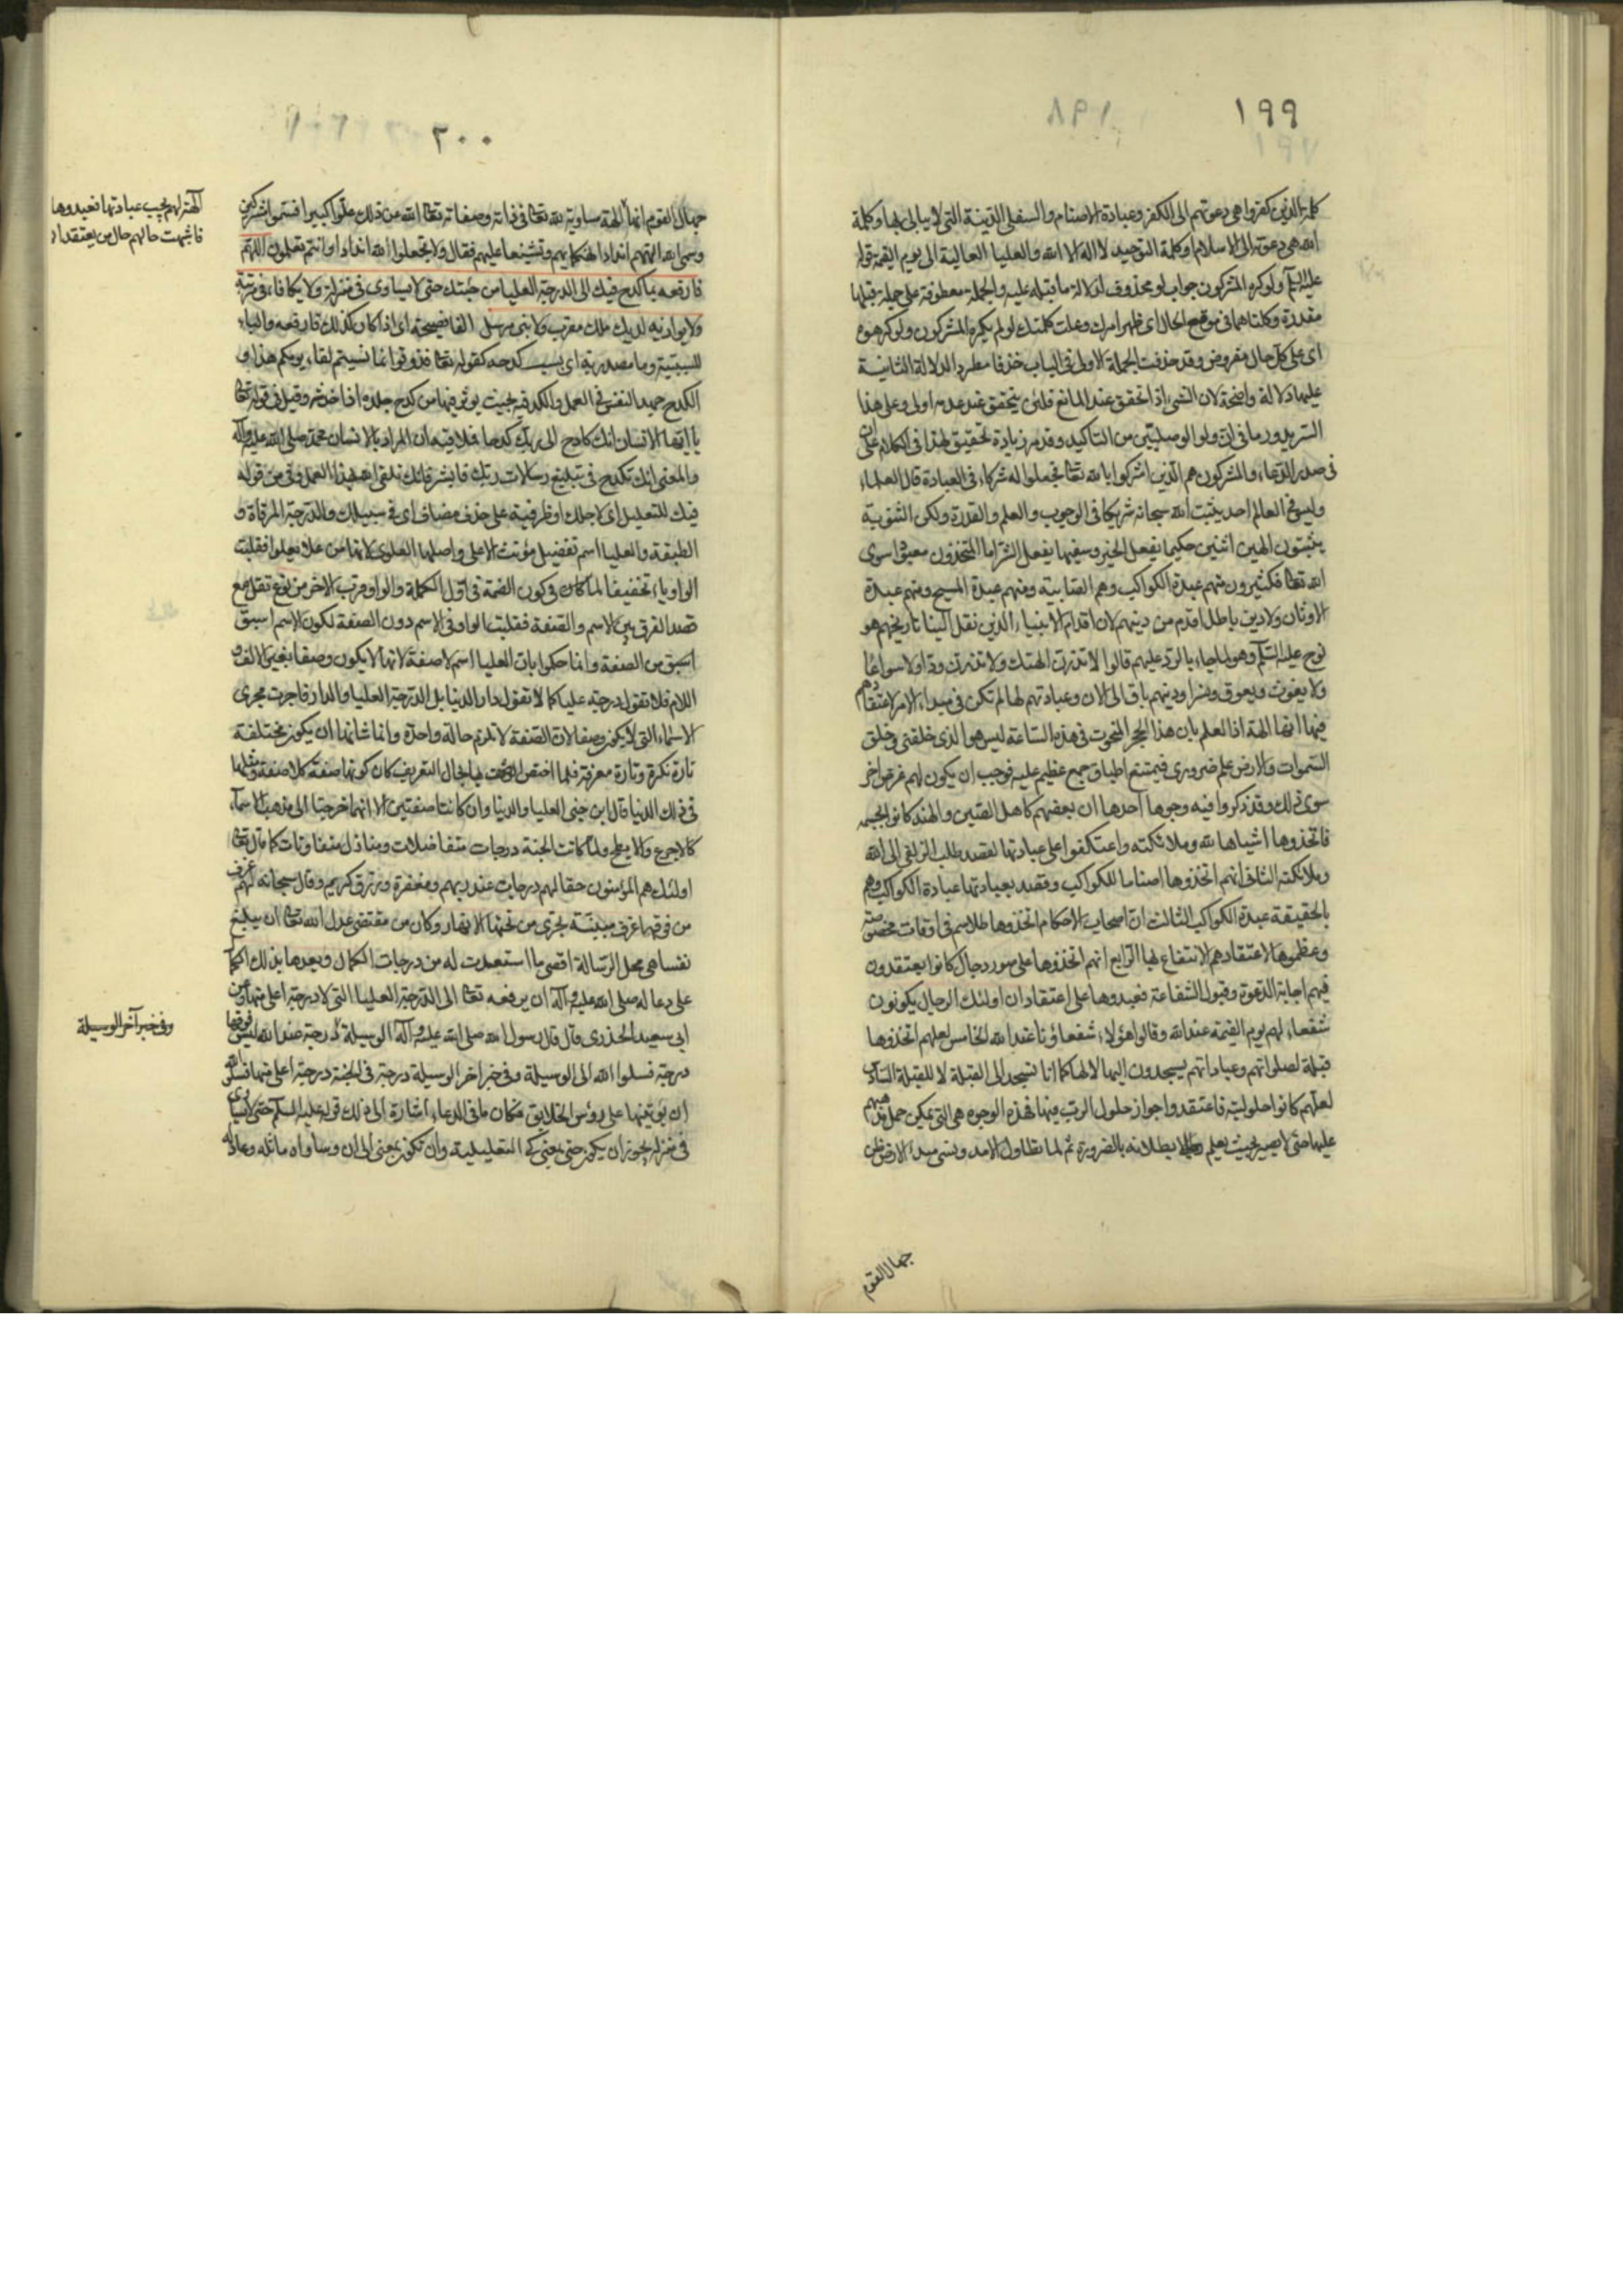 ١٩٩
كلمة الذين كفروا هي دعوتهم الى الكفر وعبادة الاصنام والسفلى الدنية التي لا يبالى بها وكلمة
الله هي دعوته الى الاسلام وكلمة التوحيد لا اله الا الله والعليا العالية الى يوم القيمة قوله
عليه السلم ولو كره المشركون جواب لو محذوف لدلالة ما قبله عليه والجملة معطوفة على جملة قبلها
مقدرة وكلتاهما في موقع الحال اى ظهر امرك وعلت كلمتك لو لم يكره المشركون ولو كرهوه
اى على كل حال مفروض وقد حذفت الجملة الاولى في الباب حذفا مطردا لدلالة الثانية
عليها دلالة واضحة لان الشيء اذا تحقق عند المانع فلئن يتحقق عند عدمه اولى وعلى هذا
السر يدور ما في ان ولو الوصليتين من التاكيد وقد مر زيادة تحقيق لهذا في الكلام على ان
في صدر الدعاء والمشركون هم الذين اشركوا بالله تعا فجعلوا له شركاء في العبادة قال العلماء
وليس في العالم احد يثبت لله سبحانه شريكا في الوجوب والعلم والقدرة ولكن الثنوية
يثبتون الهين اثنين حكيما يفعل الخير وسفيها يفعل الشر اما المتخذون معبودا سوى
الله تعا فكثيرون منهم عبدة الكواكب وهم الصابية ومنهم عبدة المسيح ومنهم عبدة
الاوثان ولا دين باطل اقدم من دينهم لان اقدام الانبياء الذين نقل الينا تاريخهم هو
نوح عليه السلم وهو لما جاء بالرد عليهم قالوا لا تذرن الهتكم ولا تذرن ودا ولا سواعا
ولا يغوث ويعوق ونسرا ودينهم باق الى الان وعبادتهم لها لم تكن في مبداء الامر لاعتقادهم
فيها انها الهة اذا العلم بان هذا الحجر المنحوت في هذه الساعة ليس هو الذى خلقنى وخلق
السموات والارض علم ضرورى فيمتنع اطباق جمع عظيم عليه فوجب ان يكون لهم غرض اخر
سوى ذلك وقد ذكروا فيه وجوها احدها ان بعضهم كاهل الصين والهند كانوا مجسمه
فاتخذوها اشباها لله وملائكته واعتكفوا على عبادتها لقصد طلب الزلفى الى الله
وملائكته الثانى انهم اتخذوها اصناما للكواكب وقصد بعبادتها عبادة الكواكب وهم
بالحقيقة عبدة الكواكب الثالث ان اصحاب الاحكام اتخذوها طلاسم في اوقات مخصوصة
وعظموها لاعتقادهم الانتفاع بها الرابع انهم اتخذوها على صور رجال كانوا يعتقدون
فيهم اجابة الدعوة وقبول الشفاعة فعبدوها على اعتقاد ان اولئك الرجال يكونون
شفعاء لهم يوم القيمة عند الله وقالوا هؤلاء شفعاؤنا عند الله الخامس لعلهم اتخذوها
قبلة لصلواتهم وعباداتهم يسجدون اليها لا لها كما انا نسجد الى القبلة لا للقبلة السادس
لعلهم كانوا حلولية فاعتقدوا جواز حلول الرب فيها فهذه الوجوه هى التى يمكن حمل مذهبهم
عليها حتى لا يصير بحيث يعلم بطلانه بالضرورة ثم لما تطاول الامد ونسى مبدء الارض ظن
جهال القوم
٢٠٠
جهال القوم انها الهة مساوية لله تعا في ذاته وصفاته تعا الله عن ذلك علوا كبيرا فسموا مشركين
وسمى الله الهتهم اندادا تهكما بهم وتشنيعا عليهم فقال ولا تجعلوا لله اندادا وانتم تعلمون اللهم
فارفعه بما كدح فيك الى الدرجة العليا من جنتك حتى لا يساوى في منزلة ولا يكافاء في مرتبة
ولا يوازيه لديك ملك مقرب ولا نبى مرسل الفا فصيحة اى اذا كان كذلك فارفعه والباء
للسببية وما مصدرية اى بسبب كدحه كقوله تعا فذوقوا بما نسيتم لقاء يومكم هذا و
الكدح جهد النفس في العمل والكد فيه بحيث يوثر فيها من كدح جلده اذا خدشه وقيل في قوله تعا
يا ايها الانسان انك كادح الى ربك كدحا فملاقيه ان المراد بالانسان محمد صلى الله عليه وآله
والمعنى انك تكدح في تبليغ رسالات ربك فابشر فانك تلقى الله بهذا العمل وفي من قوله
فيك للتعليل اى لاجلك او ظرفية على حذف مضاف اى في سبيلك والدرجة المرقاة و
الطبقة والعليا اسم تفضيل مؤنث الاعلى واصلها العلوى لانها من علا يعلو فقلبت
الواو ياء تخفيفا لما كان في كون الضمة في اول الكلمة والواو قرب الاخر من نوع ثقل مع
قصد الفرق بين الاسم والصفة فقلبت الواو في الاسم دون الصفة لكون الاسم اسبق
اسبق من الصفة وانما حكموا بان العليا اسم لا صفة لانها لا يكون وصفا بغير الالف و
اللام فلا تقول درجة عليا كما لا تقول دار الدنيا بل الدرجة العليا والدار فاجرت مجرى
الاسماء التى لا يكون وصفا لان الصفة لا تلزم حالة واحدة وانما شانها ان يكون مختلفة
تارة نكرة وتارة معرفة فلما اختص الوصف بها بحال التعريف كان كونها صفة كلا صفة ومثلها
في ذلك الدنيا قال ابن جنى العليا والدنيا وان كانتا صفتين الا انهما خرجتا الى مذهب الاسماء
كالاجرع والابطح ولما كانت الجنة درجات متفاضلات ومنازل متفاوتات كما قال تعا
اولئك هم المؤمنون حقا لهم درجات عند ربهم ومغفرة ورزق كريم وقال سبحانه لهم غرف
من فوقها غرف مبنية تجرى من تحتها الانهار وكان من مقتضى عدل الله تعا ان يبلغ
نفسا هى محل الرسالة اقصى ما استعدت له من درجات الكمال ويعدها بذلك
على دعا له صلى الله عليه وآله ان يرفعه تعا الى الدرجة العليا التى لا درجة اعلى منها وعن
ابى سعيد الخدرى قال قال رسول الله صلى الله عليه وآله الوسيلة درجة عند الله ليس فوقها
درجة فسلوا الله الى الوسيلة وفي خبر اخر الوسيلة درجة في الجنة درجة اعلى منها فسلوا الله
ان يؤتينها على رؤس الخلايق فكان ما في الدعاء اشارة الى ذلك قوله عليه السلم حتى لا يساوى
في منزلة يجوز ان يكون حتى بمعنى كى التعليلية وان تكون بمعنى الى ان وساواه ماثله وعادله
آلهتهم يجب عبادتها فعبدوها
فاشبهت حالهم حال من يعتقد ان
وفي خبر آخر الوسيلة